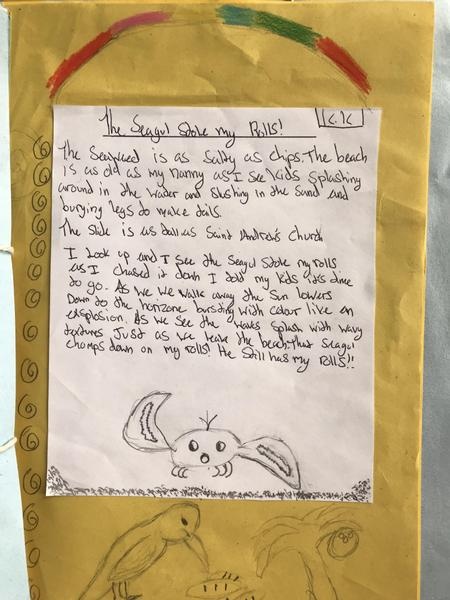 The Seagul Stole my Rolls!
K.K
The Seaweed is as salty as chips. The beach
is as old as my Nanny as I see kids splashing
around in the water and slushing in the sand and
burying legs to make tails.
The slide is as tall as Saint Andrews Church
I Look up and I see the Seagul Stole my rolls
as I chased it down I told my kids it's time
to go. As we we walk away the Sun lowers
Down to the horizone bursting with colour like an
explosion. As we see the waves splash with wavy
textures Just as we leave the beach that Seagul
chomps down on my rolls! He Still has my Rolls!!